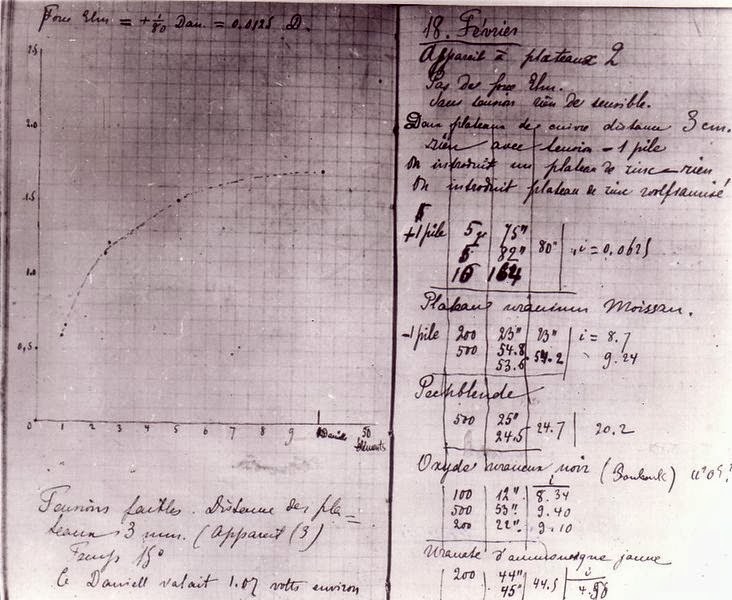 Force Elm = + 1/80 Dan. = 0.0125 D.
2.5
2.0
1.5
1.0
0,5
0 1 2 3 4 5 6 7 8 9 Daniell 50
éléments
Tensions faibles. Distance des pla=
teaux 3 mm. (Appareil (3)
Temp 15°
le Daniell valait 1.07 volts environ
18. Février
Appareil à plateaux 2
Pas de force Elm.
Sans tension rien de sensible.
Deux plateaux de cuivre distance 3 cm.
rien avec tension = 1 pile
On introduit un plateau de zinc = rien
On introduit plateau de zinc
+1 pile 5 75"
5 82" 80" i = 0.0625
10 164
Plateau uranium Moissan.
-1 pile 200 23" 23" i = 8.7
500 54.8 54.2 9.24
53.6
Pechblende
500 25" 24.7 20.2
24.5
Oxyde uraneux noir
i
100 12" 8.34
500 53" 9.40
200 22" 9.10
Uranate d'ammoniaque jaune
200 44" 44.5 i
45" 4.50